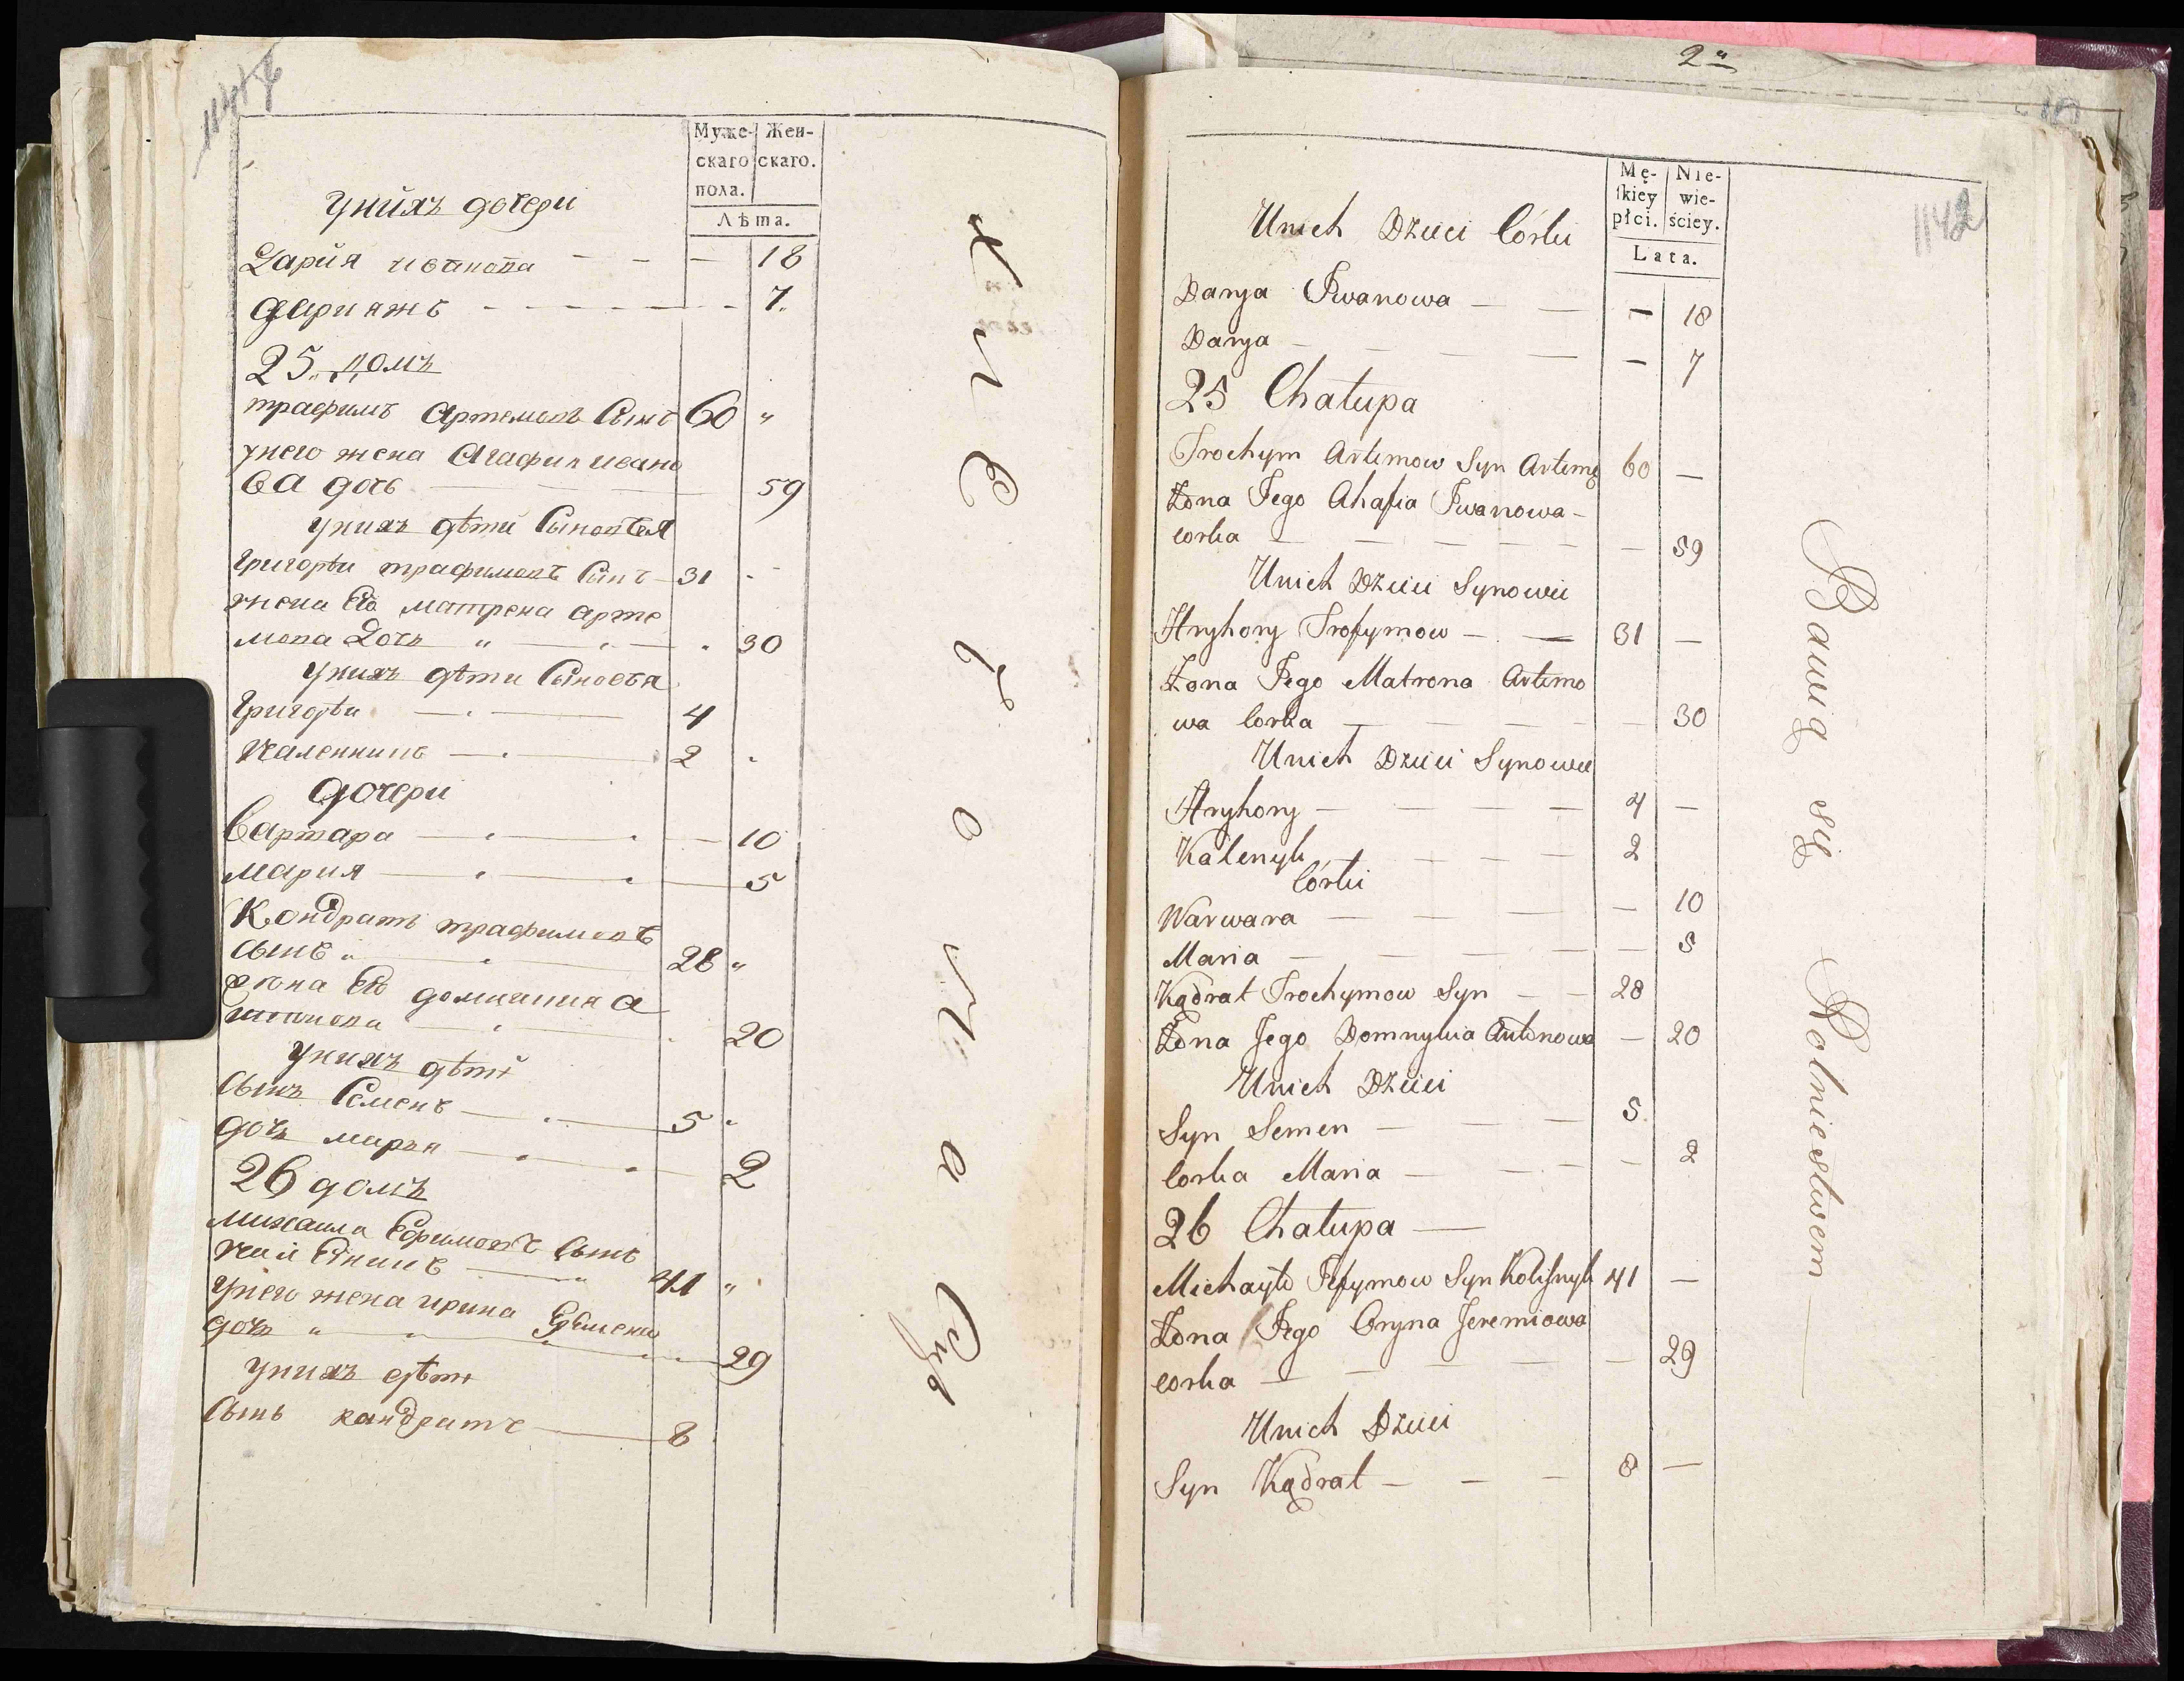 Муже-
скаго
пола.
Жен-
скаго.
Лѣта.
унихъ дочери
Дария иванова — — — 18
дарияжъ — — — 7.
25 домъ
трафимъ Артемовъ Сынъ 60 "
унего жена Агафия ивано
ва дочь — — 59
унихъ дѣти Сыновья
Григорѣи трафимовъ Сынъ — 31
жена Его матрена арте
мова Дочь " — — 30
унихъ дѣти Сыновья
Григорѣи — — 4
каленникъ — — 2
дочери
варвара — — — 10
мария — — — 5
Кондратъ трафимовъ
сынъ " — 28 "
жена Его домникия а
нтонова — — 20
унихъ дѣти
сынъ Семенъ — — 5
дочь марья — — 2
26 домъ
михаила Ефимовъ Сынъ
41 "
унего жена ирина
дочь " — — 29
унихъ дѣти
Сынъ кандратъ — 8
1142
Mę-
ſkiey
płci.
Nie-
wie-
ściey.
Lata.
Unich Dzieci Córki
Darya Iwanowa — — — 18
Darya — — — — — 7
25 Chałupa
Trochym Artemow Syn Artemę 60 —
Żona Jego Ahafia Iwanowa —
corka — — — — — 59
Unich Dzieci Synowie
Hryhory Trofymow — — 31 —
Żona Jego Matrona Artemo
wa Corka — — — — 30
Unich Dzieci Synowie
Hryhory — — — — 4 —
Kałenyk — — — — 2
Córki
Warwara — — — — 10
Maria — — — — — 5
Kądrat Trochymow Syn — — 28
Żona Jego Domnykia Antonowa — 20
Unich Dzieci
Syn Semen — — — 5
Corka Maria — — — — 2
26 Chałupa —
Michayło Jefymow Syn Kolisnyk 41 —
Żona Jego Oryna Jeremiowa
corka — — — — 29
Unich Dzieci
Syn Kądrat — — — 8 —
Bawią się Rolnictwem —